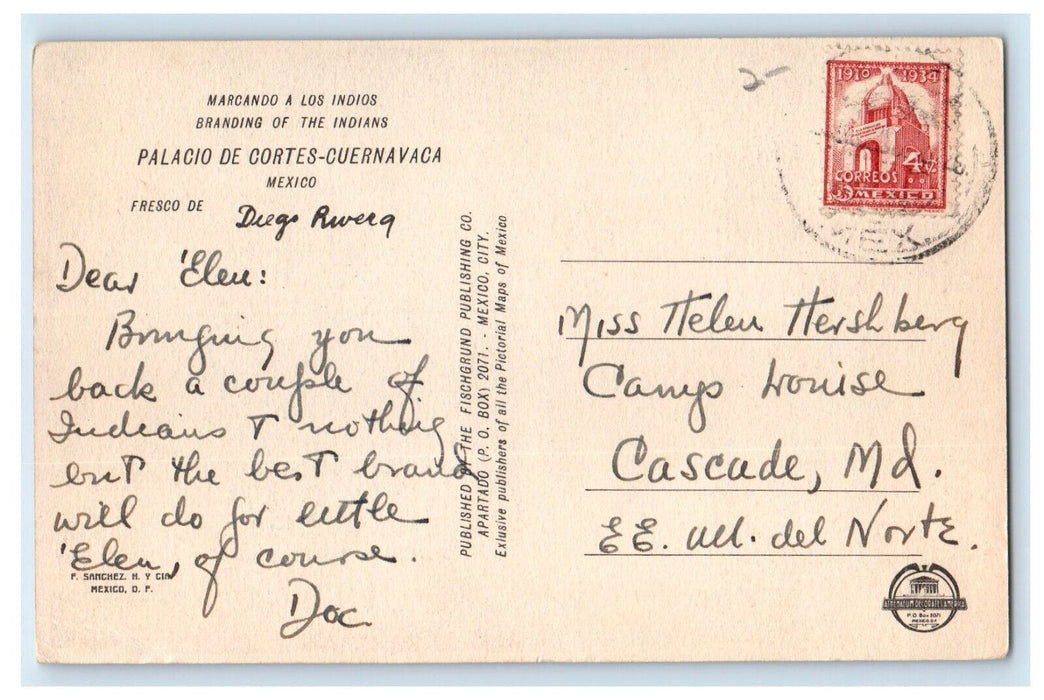 MARCANDO A LOS INDIOS
BRANDING OF THE INDIANS
PALACIO DE CORTES-CUERNAVACA
MEXICO
FRESCO DE Diego Rivera
Dear 'Elen:
Bringing you
back a couple of
Indians & nothing
but the best brand
will do for little
'Elen, of course.
Doc
F. SANCHEZ. H. Y CIA
MEXICO, D. F.
PUBLISHED BY THE FISCHGRUND PUBLISHING CO.
APARTADO (P. O. BOX) 2071. - MEXICO, CITY.
Exlusive publishers of all the Pictorial Maps of Mexico
2-
1910 1934
4
CORREOS
MEXICO
MEX
Miss Helen Hershberg
Camp Louise
Cascade, Md.
EE. UU. del Norte.
P.O Box 2071
MEXICO.D.F